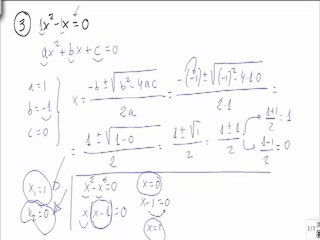 ③ 1x²-1x=0
ax²+bx+c=0
a=1
b=-1
c=0
x = (-b±√(b²-4ac))/(2a) = (-(-1)±√((-1)²-4·1·0))/(2·1) =
= (1±√(1-0))/2 = (1±√1)/2 = (1±1)/2
(1+1)/2 = 1
(1-1)/2 = 0
x₁=1
x₂=0
x²-x=0
x(x-1)=0
x=0
x-1=0
x=1
1/1